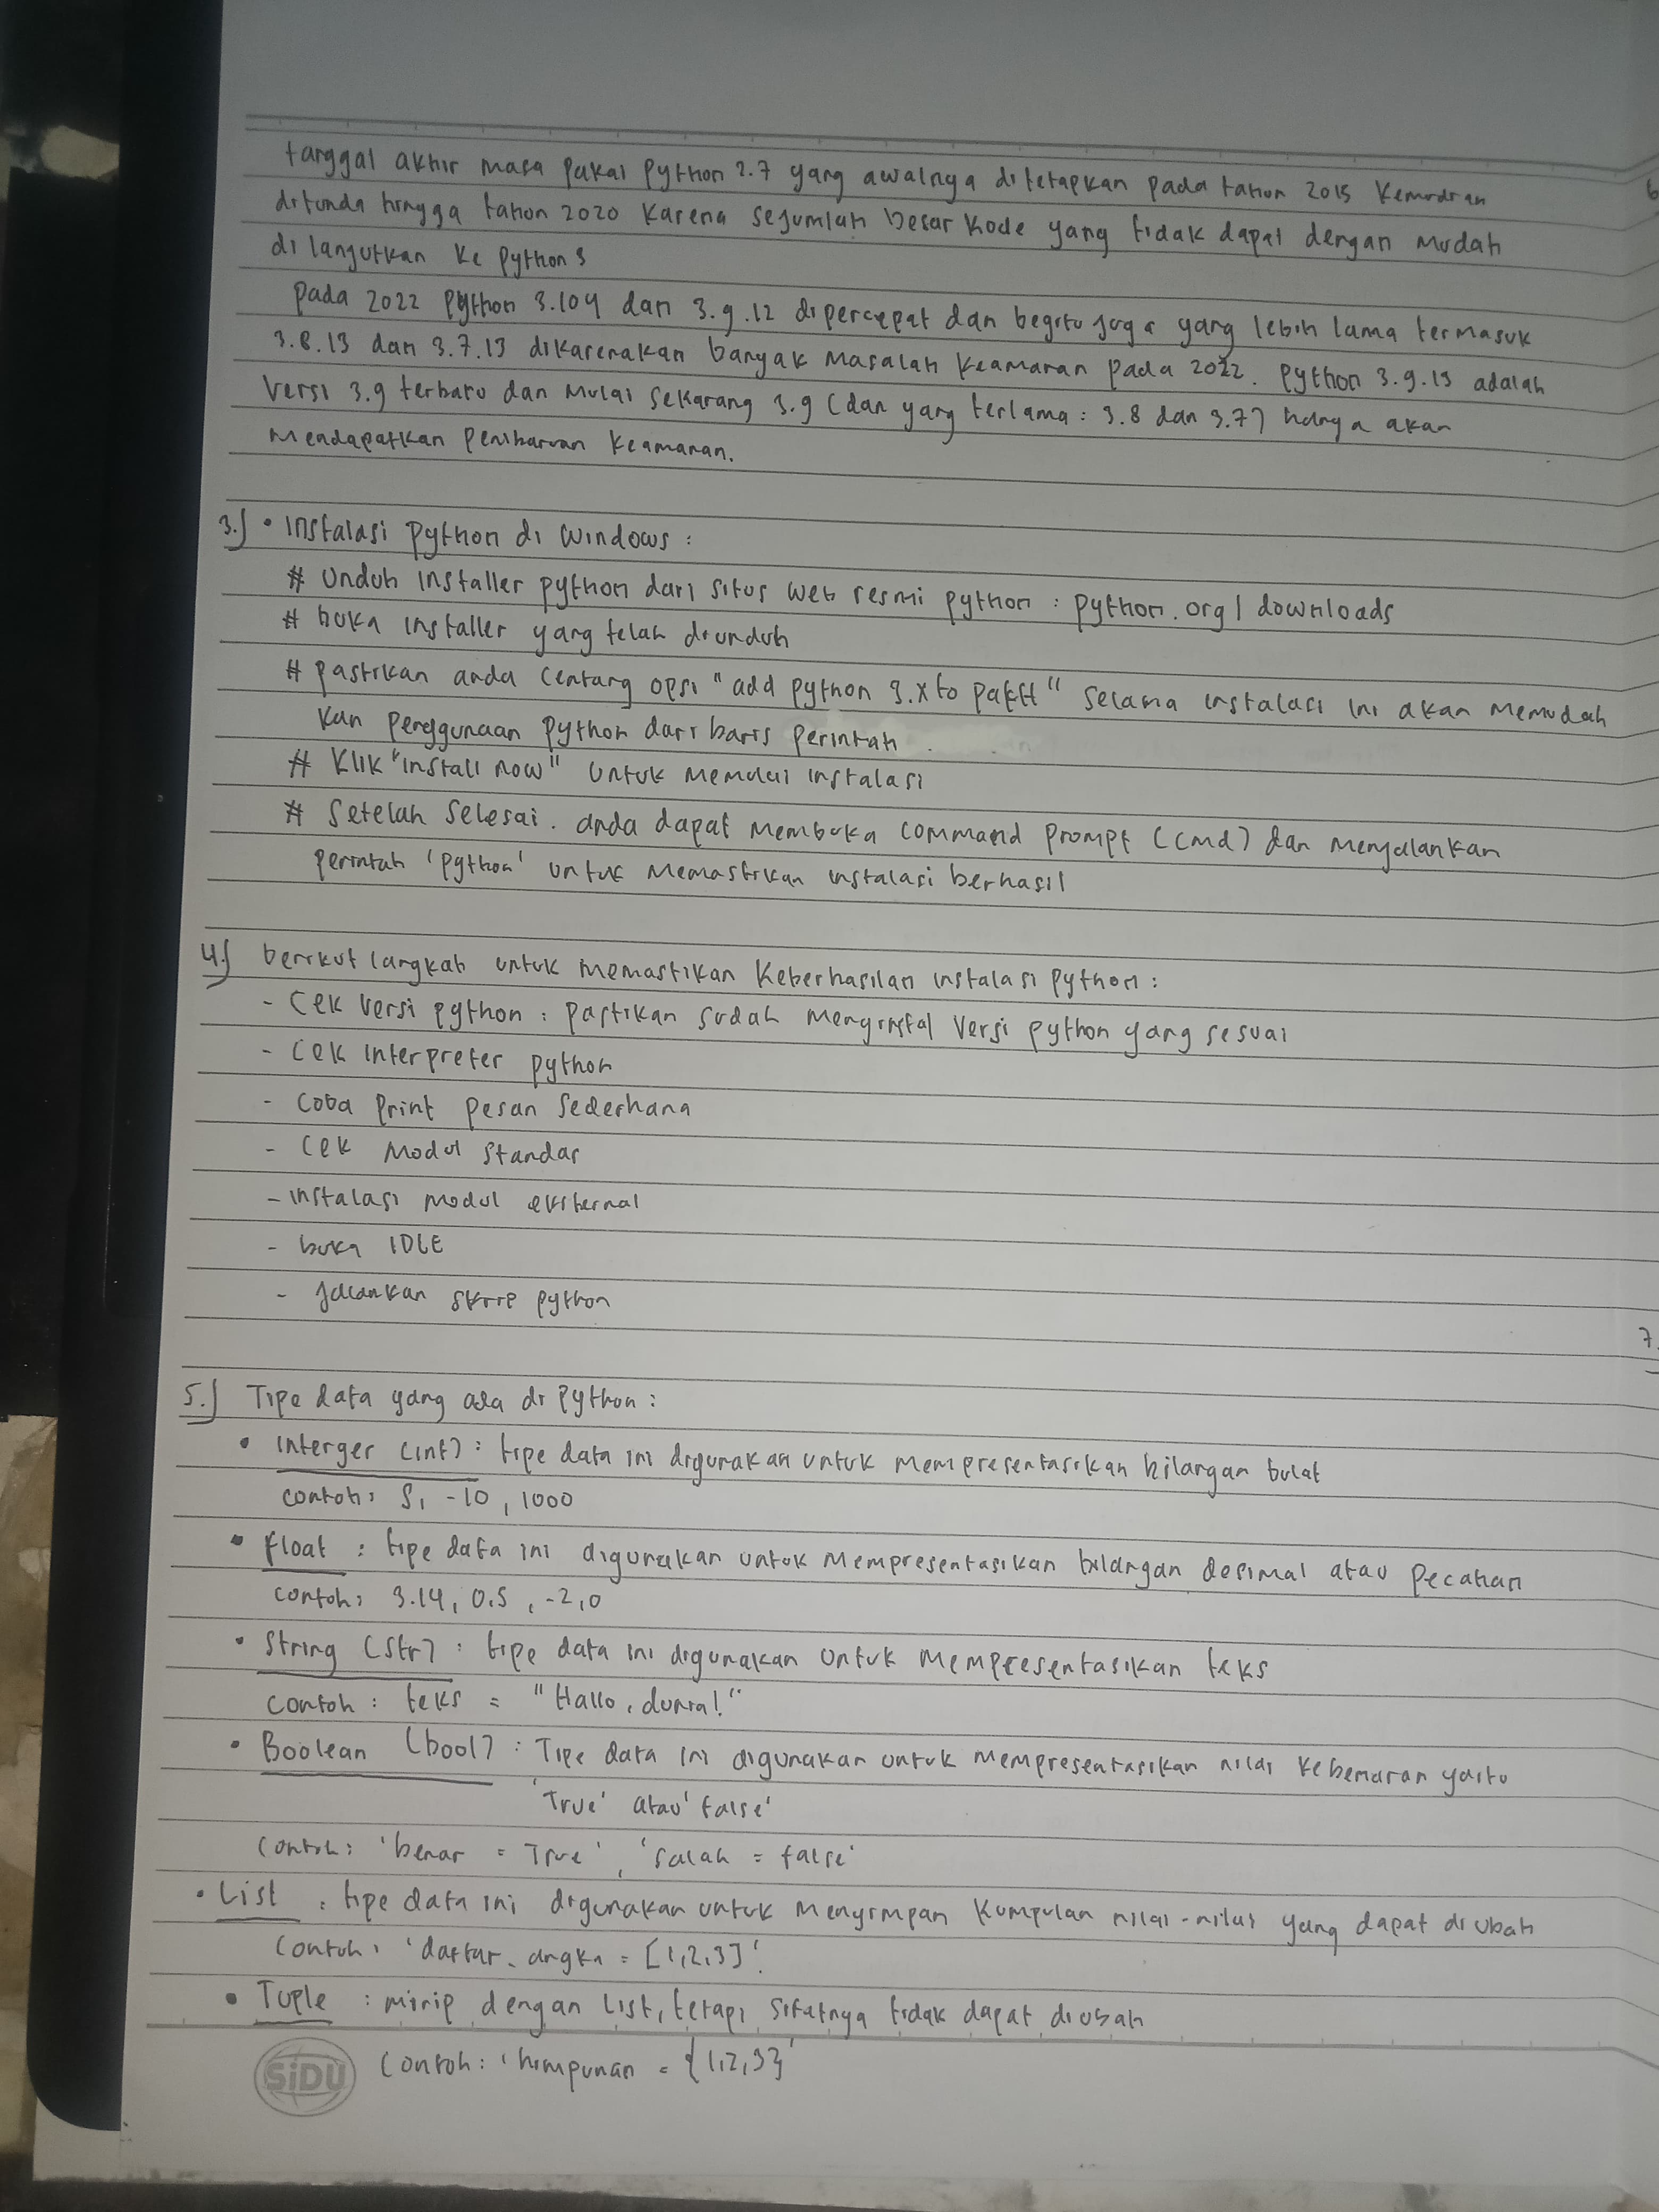 tanggal akhir masa pakai Python 2.7 yang awalnya ditetapkan pada tahun 2015 kemudian
ditunda hingga tahun 2020 karena sejumlah besar kode yang tidak dapat dengan mudah
di lanjutkan ke Python 3
Pada 2022 Python 3.104 dan 3.9.12 dipercepat dan begitu juga yang lebih lama termasuk
3.8.13 dan 3.7.13 dikarenakan banyak masalah keamanan pada 2022. Python 3.9.13 adalah
versi 3.9 terbaru dan mulai sekarang 3.9 (dan yang terlama : 3.8 dan 3.7) hanya akan
mendapatkan pembaruan keamanan.
3.) • Instalasi Python di Windows :
# Unduh installer python dari situs web resmi python : python.org/downloads
# buka installer yang telah diunduh
# pastikan anda centang opsi "add python 3.x to path" selama instalasi ini akan memudah
kan penggunaan python dari baris perintah .
# Klik "install now" untuk memulai instalasi
# Setelah selesai. anda dapat membuka command prompt (cmd) dan menjalankan
perintah 'python' untuk memastikan instalasi berhasil
4.) berikut langkah untuk memastikan keberhasilan instalasi python :
- Cek versi python : pastikan sudah menginstal versi python yang sesuai
- Cek interpreter python
- coba print pesan sederhana
- Cek modul standar
- instalasi modul eksternal
- buka IDLE
- jalankan skrip python
5.) Tipe data yang ada di Python :
• interger (int) : tipe data ini digunakan untuk mempresentasikan bilangan bulat
contoh : 5, -10, 1000
• float : tipe data ini digunakan untuk mempresentasikan bilangan desimal atau pecahan
contoh : 3.14, 0.5, -2,0
• String (str) : tipe data ini digunakan untuk mempresentasikan teks
contoh : teks = "Hallo, dunia!"
• Boolean (bool) : Tipe data ini digunakan untuk mempresentasikan nilai kebenaran yaitu
'True' atau 'false'
contoh : 'benar = True', 'salah = false'
• List : tipe data ini digunakan untuk menyimpan kumpulan nilai-nilai yang dapat diubah
contoh : 'daftar_angka = [1,2,3]'.
• Tuple : mirip dengan list, tetapi sifatnya tidak dapat diubah
contoh : 'himpunan = {1,2,3}'
SiDU
6
7.